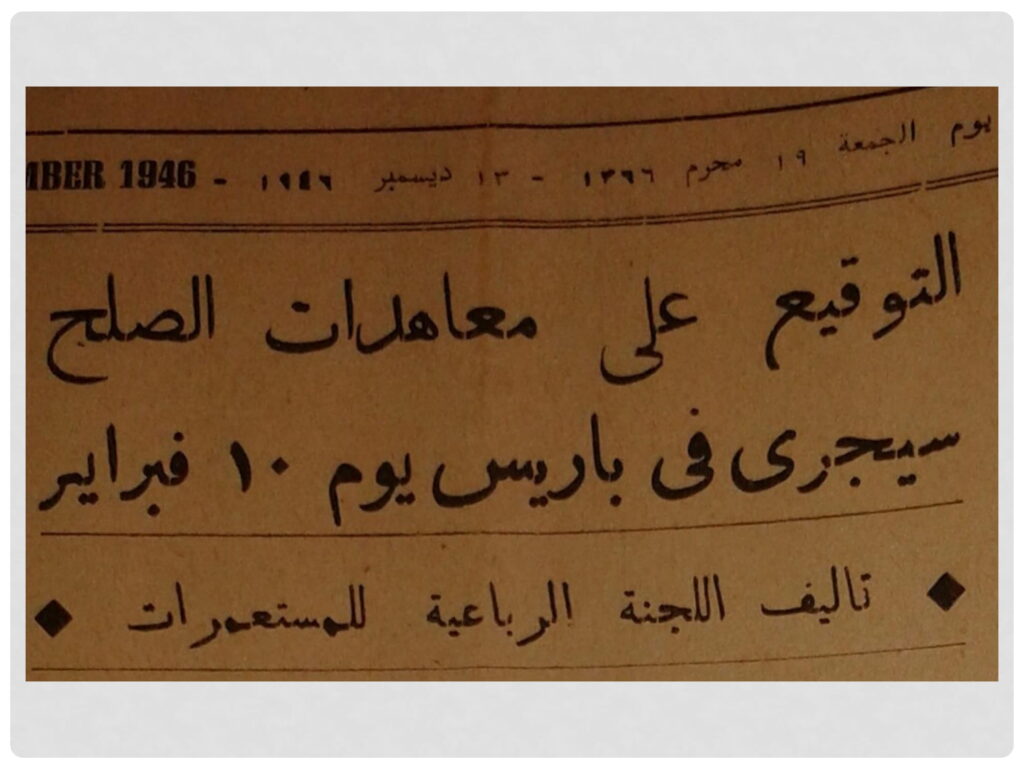 يوم الجمعة ١٩ محرم ١٣٦٦ - ١٣ ديسمبر ١٩٤٦ - MBER 1946
التوقيع على معاهدات الصلح
سيجرى فى باريس يوم ١٠ فبراير
◆ تاليف اللجنة الرباعية للمستعمرات ◆